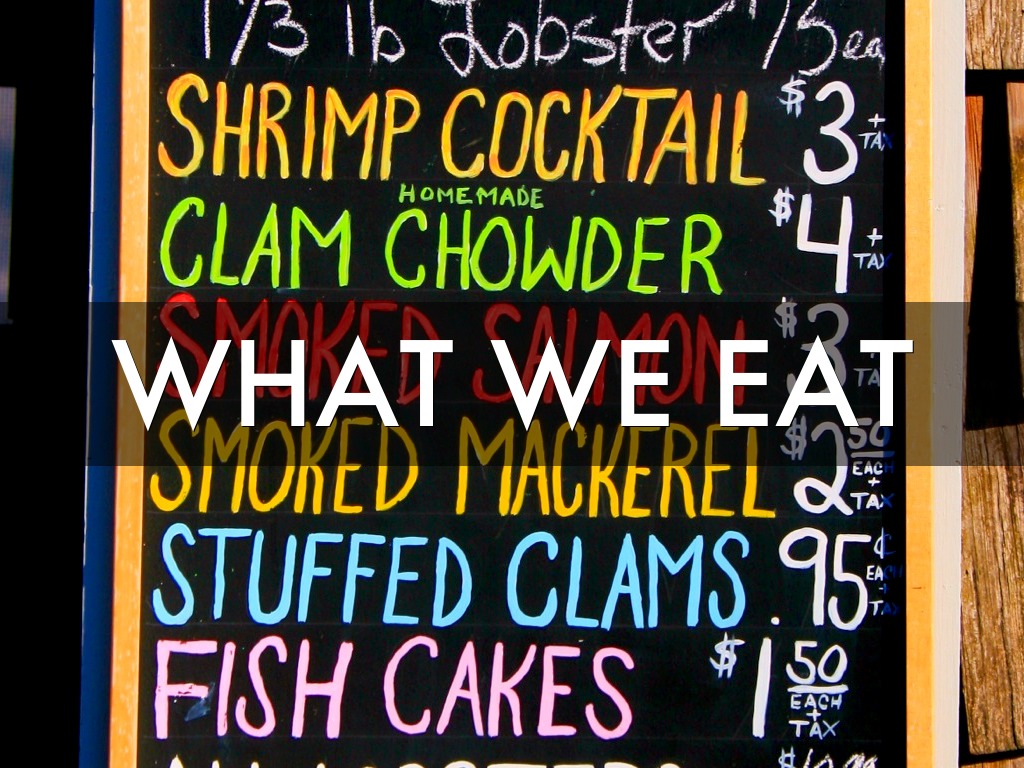 1 1/3 lb Lobster 15 ea
SHRIMP COCKTAIL $3 + TAX
HOMEMADE
CLAM CHOWDER $4 + TAX
SMOKED SALMON $3 + TAX
WHAT WE EAT
SMOKED MACKEREL $2 50 EACH + TAX
STUFFED CLAMS .95¢ EACH + TAX
FISH CAKES $1 50 EACH + TAX